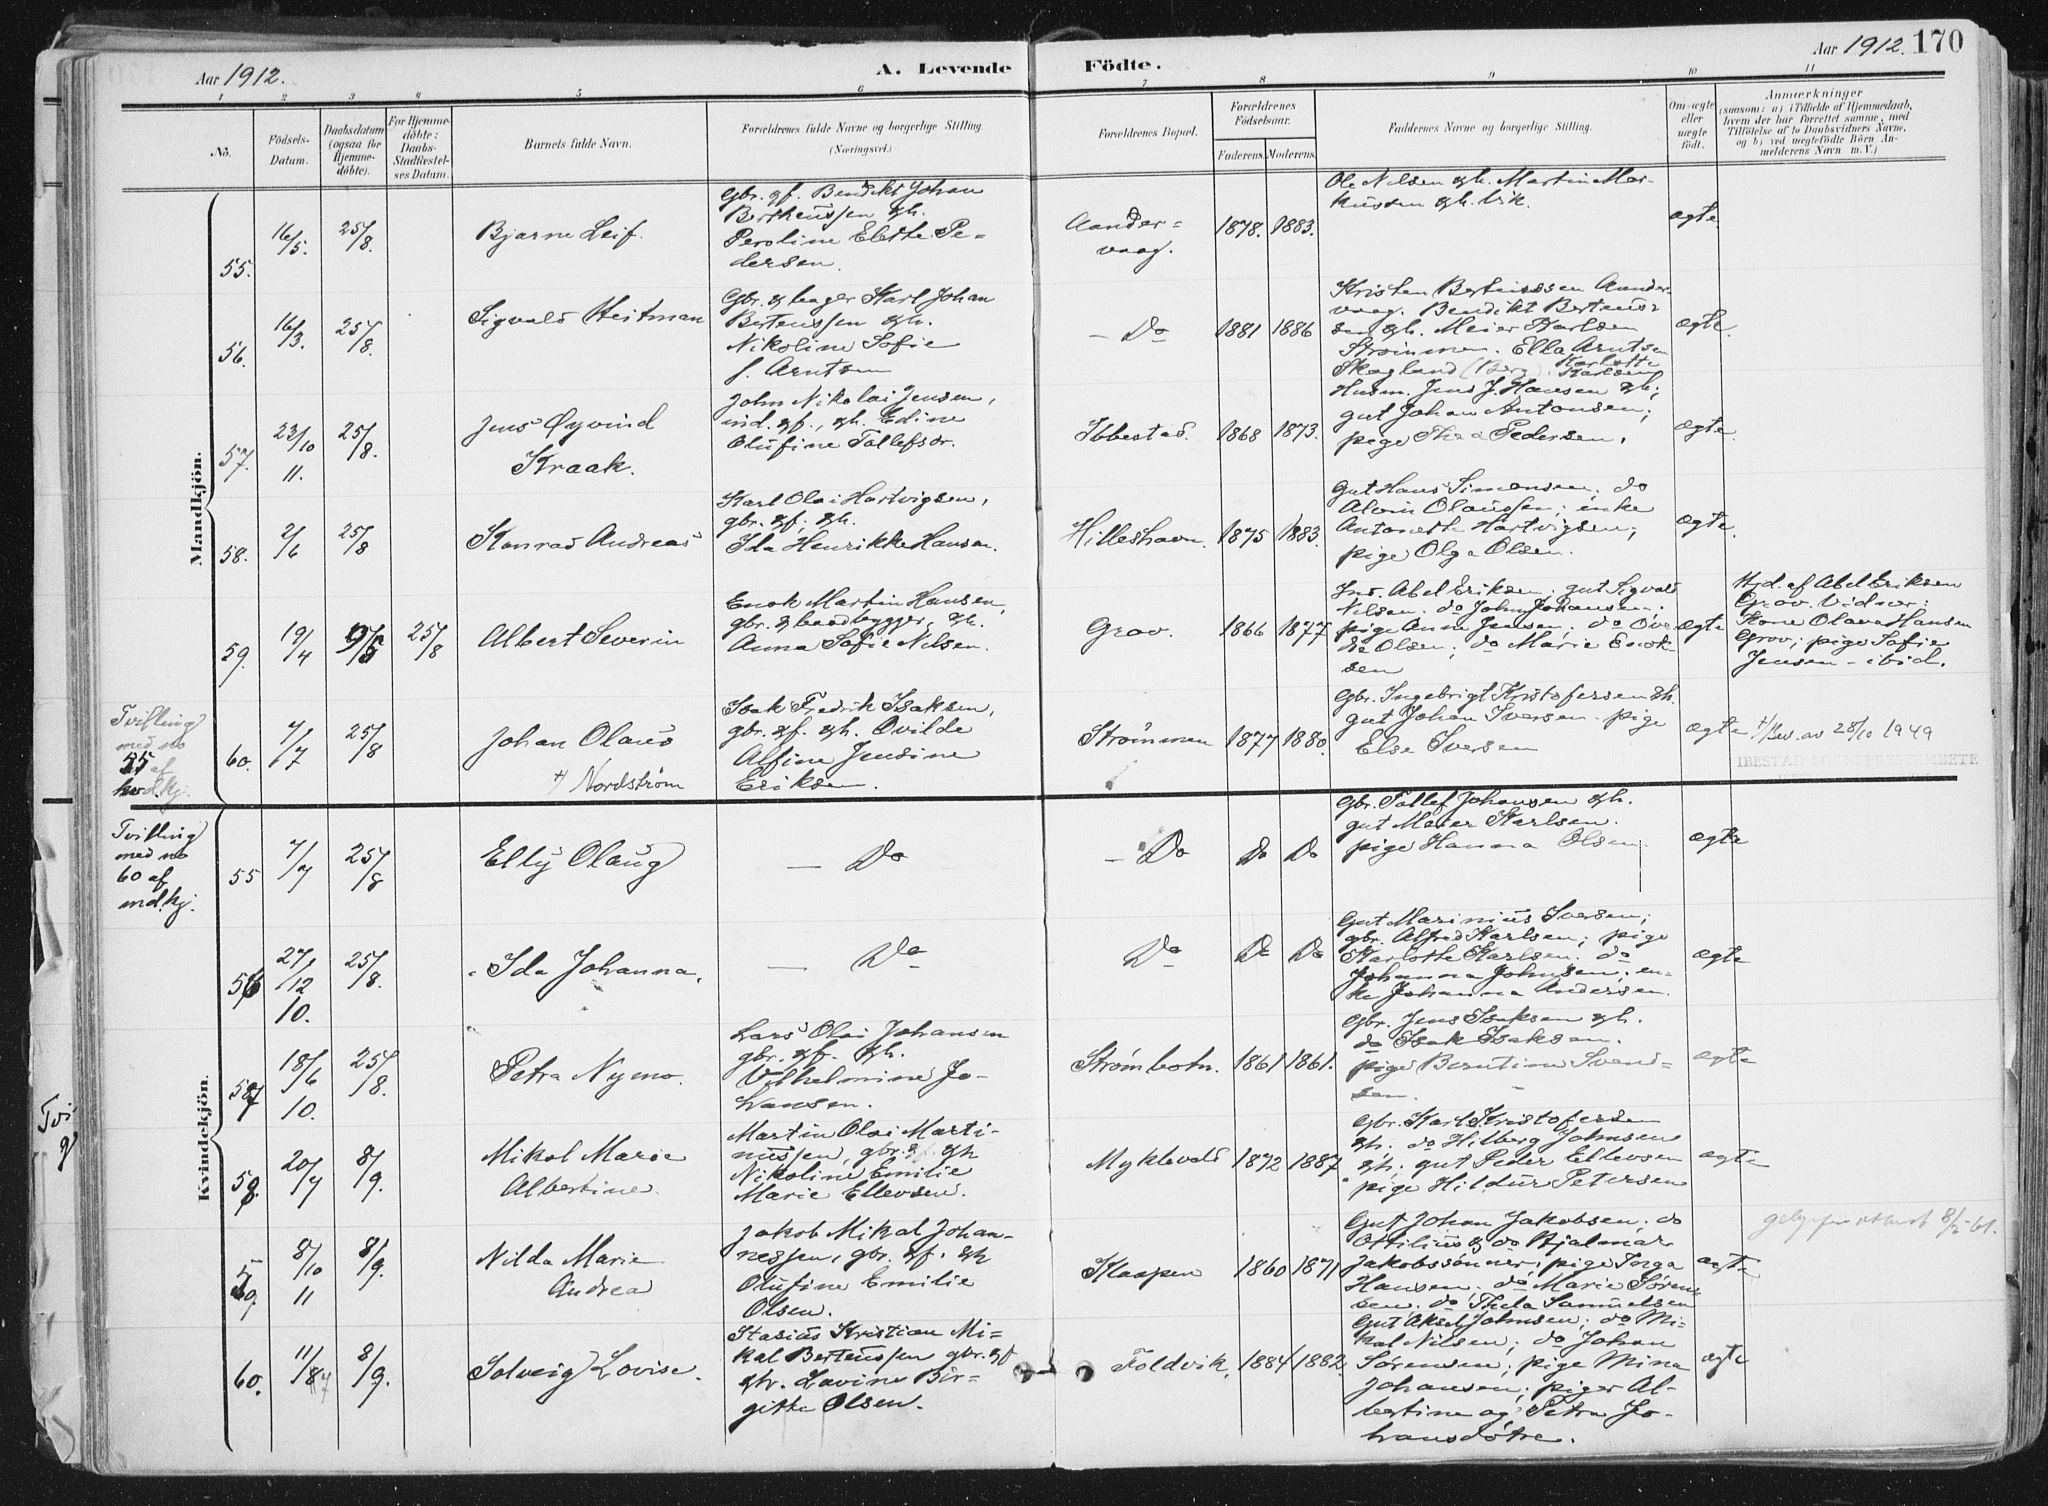 Aar 1912.
A. Levende Födte.
Aar 1912. 170
1 2 3 4 5 6 7 8 9 10 11
No.
Födsels-
Datum.
Daabsdatum
(ogsaa for
Hjemme-
döbte).
For Hjemme-
döbte:
Daabs-
Stadfestel-
ses Datum.
Barnets fulde Navn.
Forældrenes fulde Navne og borgerlige Stilling.
(Næringsvei.)
Forældrenes Bopæl.
Forældrenes
Födselsaar.
Faderens. Moderens.
Faddernes Navne og borgerlige Stilling.
Om ægte
eller
uægte
födt.
Anmærkninger
(saasom: a) i Tilfælde af Hjemmedaab,
hvem der har forrettet samme, med
Tilföielse af to Daabsvidners Navne,
og b) ved uegtefödte Börn An-
melderens Navn m. V.)
Mandkjön.
55.
16/5.
25/8.
Bjarne Leif.
Gbr. gf. Bendikt Johan
Bertheussen &h.
Peroline Elette Pe-
dersen.
Aander-
vaag.
1878. 1883.
Ole Nilsen &h. Martin Mar-
kussen &h. Vik.
ægte.
56.
16/3.
25/8.
Sigvald Heitman
Gbr. & bager Karl Johan
Berteussen &h.
Nikoline Sofie
f. Arntsen
— Do
1881 1886
Kristen Berteussen Aander-
vaag. Bendikt Berteus-
sen &h. Meier Karlsen
Strømmen. Ella Arntsen
Skogland (Berg) Karlotte
Karlsen
ægte.
57.
23/10
11.
25/8.
Jens Øyvind
Kraak.
John Nikolai Jensen,
ind. &f., &h. Edine
Olufine Tollefsdr.
Ibbestad.
1868 1873.
Husm. Jens J. Hansen &h;
gut Johan Antonsen;
pige Thea Pedersen,
ægte.
58.
2/6
25/8
Konrad Andreas
Karl Olai Hartvigsen,
gbr. &f; &h.
Ida Henrikke Hansen.
Hilleshavn.
1875 1883.
Gut Hans Simonsen; do
Alvin Olaussen; enke
Antonette Hartvigsen;
pige Olga Olsen.
ægte.
59.
19/4
9/5
25/8
Albert Severin
Enok Martin Hansen,
gbr. & baadbygger, &h.
Anna Sofie Nilsen.
Grov.
1866 1877
Ins. Abel Eriksen; gut Sigvald
Nilsen. do John Johansen;
pige Anne Jensen; do Ove-
Olsen; do Marie Enok-
sen
ægte
Hjd. af Abel Eriksen
Grov. Vidner:
Kone Olava Hansen
Grov; pige Sofie
Jensen – ibid.
Tvilling
med no
55 af
kvd.kj.
60.
7/7
25/8
Johan Olaus
+) Nordstrøm
Isak Fredrik Isaksen,
gbr. &f. &h. Ovilde
Alfine Jensine
Eriksen.
Strömmen
1877 1880.
Gbr. Ingebrigt Kristofersen &h.
gut Johan Iversen. pige
Else Iversen
ægte
+/Bev. av 28/10 1949
IBESTAD SOKNEPRESTEMBETE
Kvindekjön.
Tvilling
med no
60 af
md.kj.
55
7/7
25/8
Elly Olaug
— Do
— Do
Do Do
Gbr. Tollef Johansen &h.
gut Meier Karlsen.
pige Hanna Olsen
ægte
56
27/12
10.
25/8.
Ida Johanna.
— Do
Do
Do Do
Gut Marinius Iversen;
gbr. Alfred Karlsen; pige
Karlotte Karlsen. do
Johanna Johnsen; en-
ke Johanna Andersen.
ægte
57
18/6
10.
25/8.
Petra Nymo.
Lars Olai Johansen
gbr. &f. &h.
Vilhelmine Jo-
hansen.
Strømbotn.
1861 1861.
Gbr. Jens Isaksen &h.
do Isak Isaksen.
pige Berntine Svend-
sen.
ægte
58.
20/7
8/9.
Mikal Marie
Albertine.
Martin Olai Marti-
nussen, gbr. & &h
Nikoline Emilie
Marie Ellevsen.
Myklevold
1872 1887
Gbr. Karl Kristofersen
&h. do Hilberg Johnsen
&h. gut Peder Ellevsen
pige Hildur Petersen
ægte
59.
8/10
11
8/9.
Nilda Marie
Andrea
Jakob Mikal Johan-
nessen, gbr. &f. &h
Olufine Emilie
Olsen.
Klaapen
1860 1871
Gut Johan Jakobsen. do
Ottilius & do Hjalmar
Jakobssönner; pige Inga
Hansen. do Marie Søren-
sen. do Thela Samuelsen
ægte
8/5-61.
60.
11/8
8/9.
Solveig Lovise.
Stasius Kristian Mi-
kal Berteussen gbr. &f
&h. Lavine Bir-
gitte Olsen.
Foldvik.
1884 1882.
Gut Aksel Johnsen; do Mi-
kal Nilsen; do Johan
Sørensen; pige Mina
Johansen; piger Al-
bertine og Petra Jo-
hansdøtre.
ægte